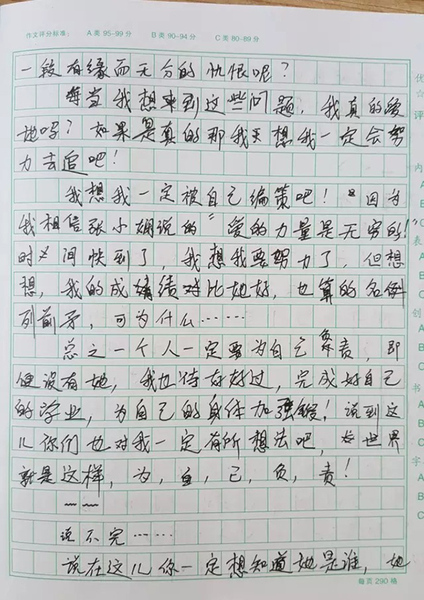 作文评分标准： A类95-99分 B类90-94分 C类80-89分
一段有缘而无分的忧恨呢？
每当我想来到这些问题，我真的爱
她吗？如果是真的那我天想我一定会努
力去追吧！
我想我一定被自己编策吧！"因为
我相信张小娴说的"爱的力量是无穷的！"
时间快到了，我想我要努力了，但想
想，我的成绩对比她好，也算的名列
列前矛，可为什么……
总之一个人一定要为自己负责，即
便没有她，我也得好好过，完成好自己
的学业，为自己的身体加强锻！说到这
儿你们也对我一定有所想法吧，世界
就是这样，为，自，己，负，责！
~~
说不完……
说在这儿你一定想知道她是谁，她
每页290格
优
评
内
A
B
C
表
A
B
C
创
A
B
C
书
字
A
B
C